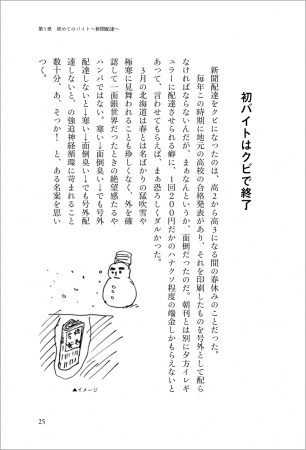 第1章　初めてのバイト～新聞配達～
初バイトはクビで終了
新聞配達をクビになったのは、高2から高3になる間の春休みのことだった。
毎年この時期に地元の高校の合格発表があり、それを印刷したものを号外として配ら
なければならないんだが、まぁなんというか、面倒だったのだ。朝刊とは別に夕方イレギ
ュラーに配達させられる癖に、1回200円だかのハナクソ程度の端金しかもらえないと
あって、言わせてもらえば、まぁ恐ろしくダルかった。
3月の北海道は春とは名ばかりの猛吹雪や
極寒に見舞われることも珍しくなく、外を確
認して一面銀世界だったときの絶望感たるや
ハンパではない。寒い→面倒臭い→でも号外
配達しないと→寒い→面倒臭い→でも号外配
達しないと、の強迫神経循環に苛まれること
数十分、あ、そっか！　と、ある名案を思い
つく。
▲イメージ
25